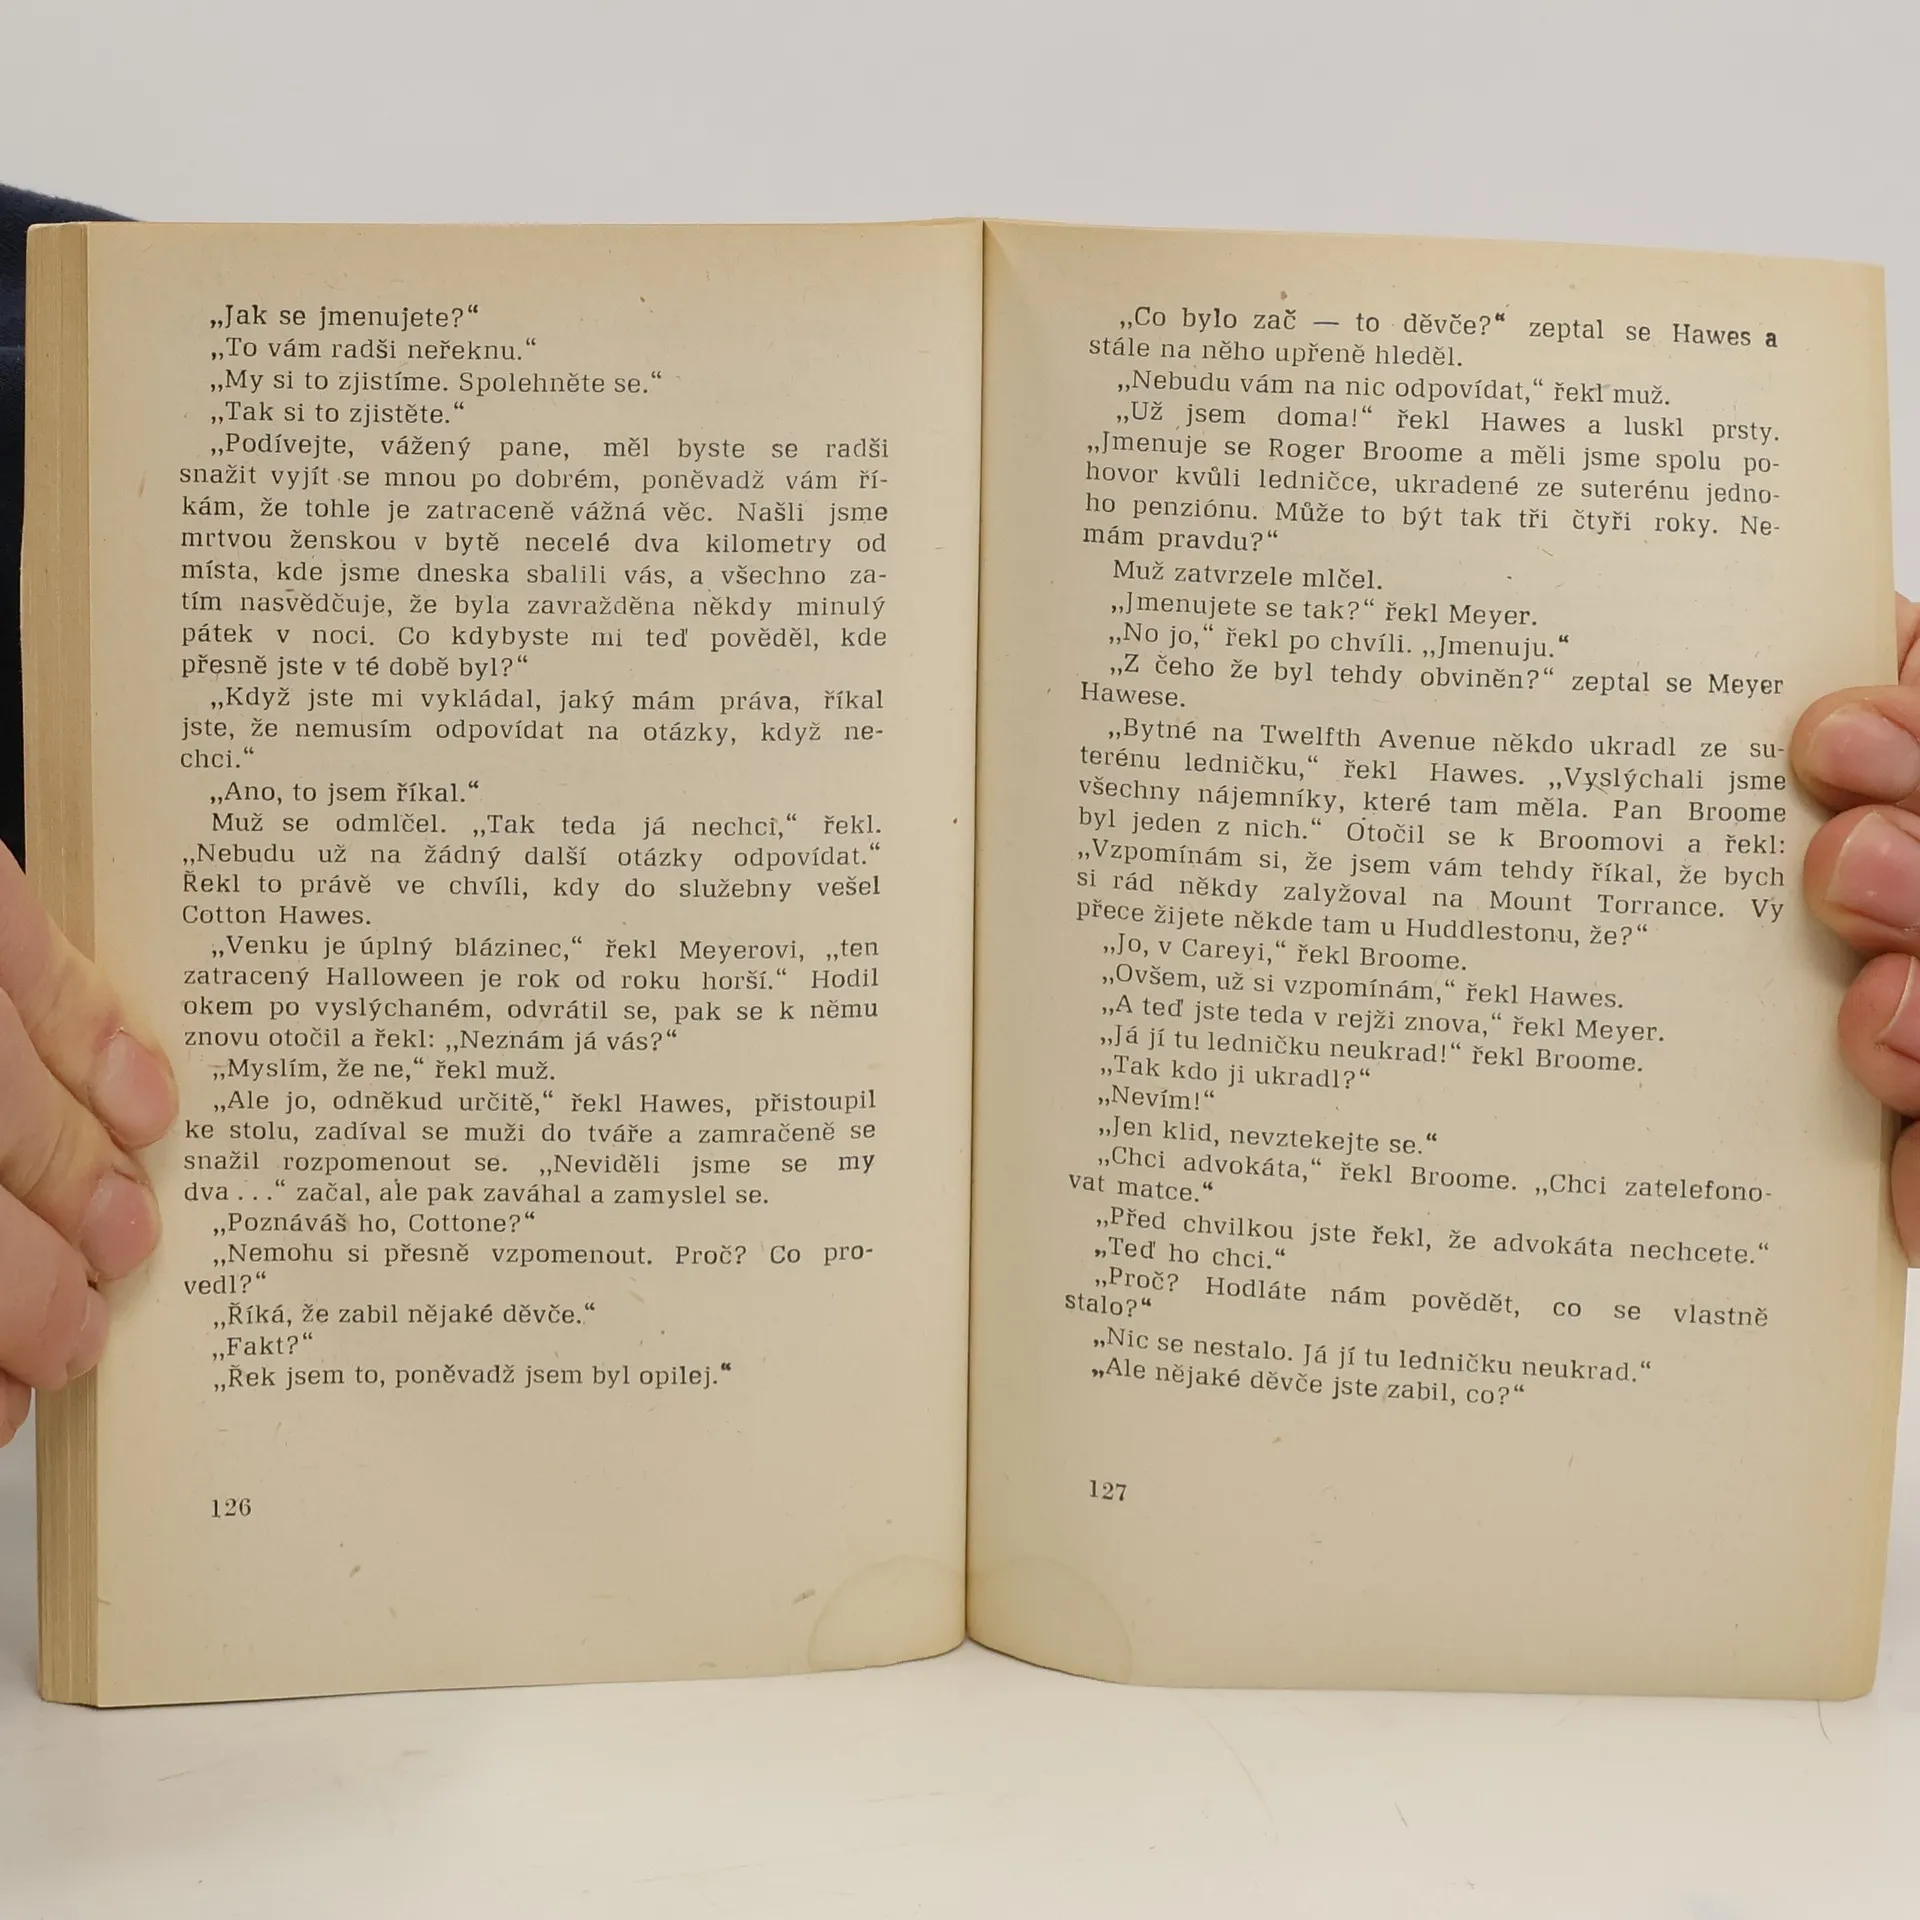 „Jak se jmenujete?“
„To vám radši neřeknu.“
„My si to zjistíme. Spolehněte se.“
„Tak si to zjistěte.“
„Podívejte, vážený pane, měl byste se radši
snažit vyjít se mnou po dobrém, poněvadž vám ří-
kám, že tohle je zatraceně vážná věc. Našli jsme
mrtvou ženskou v bytě necelé dva kilometry od
místa, kde jsme dneska sbalili vás, a všechno za-
tím nasvědčuje, že byla zavražděna někdy minulý
pátek v noci. Co kdybyste mi teď pověděl, kde
přesně jste v té době byl?“
„Když jste mi vykládal, jaký mám práva, říkal
jste, že nemusím odpovídat na otázky, když ne-
chci.“
„Ano, to jsem říkal.“
Muž se odmlčel. „Tak teda já nechci,“ řekl.
„Nebudu už na žádný další otázky odpovídat.“
Řekl to právě ve chvíli, kdy do služebny vešel
Cotton Hawes.
„Venku je úplný blázinec,“ řekl Meyerovi, „ten
zatracený Halloween je rok od roku horší.“ Hodil
okem po vyslýchaném, odvrátil se, pak se k němu
znovu otočil a řekl: „Neznám já vás?“
„Myslím, že ne,“ řekl muž.
„Ale jo, odněkud určitě,“ řekl Hawes, přistoupil
ke stolu, zadíval se muži do tváře a zamračeně se
snažil rozpomenout se. „Neviděli jsme se my
dva . . .“ začal, ale pak zaváhal a zamyslel se.
„Poznáváš ho, Cottone?“
„Nemohu si přesně vzpomenout. Proč? Co pro-
vedl?“
„Říká, že zabil nějaké děvče.“
„Fakt?“
„Řek jsem to, poněvadž jsem byl opilej.“
126
„Co bylo zač — to děvče?“ zeptal se Hawes a
stále na něho upřeně hleděl.
„Nebudu vám na nic odpovídat,“ řekl muž.
„Už jsem doma!“ řekl Hawes a luskl prsty.
„Jmenuje se Roger Broome a měli jsme spolu po-
hovor kvůli ledničce, ukradené ze suterénu jedno-
ho penziónu. Může to být tak tři čtyři roky. Ne-
mám pravdu?“
Muž zatvrzele mlčel.
„Jmenujete se tak?“ řekl Meyer.
„No jo,“ řekl po chvíli. „Jmenuju.“
„Z čeho že byl tehdy obviněn?“ zeptal se Meyer
Hawese.
„Bytné na Twelfth Avenue někdo ukradl ze su-
terénu ledničku,“ řekl Hawes. „Vyslýchali jsme
všechny nájemníky, které tam měla. Pan Broome
byl jeden z nich.“ Otočil se k Broomovi a řekl:
„Vzpomínám si, že jsem vám tehdy říkal, že bych
si rád někdy zalyžoval na Mount Torrance. Vy
přece žijete někde tam u Huddlestonu, že?“
„Jo, v Careyi,“ řekl Broome.
„Ovšem, už si vzpomínám,“ řekl Hawes.
„A teď jste teda v rejži znova,“ řekl Meyer.
„Já jí tu ledničku neukrad!“ řekl Broome.
„Tak kdo ji ukradl?“
„Nevím!“
„Jen klid, nevztekejte se.“
„Chci advokáta,“ řekl Broome. „Chci zatelefono-
vat matce.“
„Před chvilkou jste řekl, že advokáta nechcete.“
„Teď ho chci.“
„Proč? Hodláte nám povědět, co se vlastně
stalo?“
„Nic se nestalo. Já jí tu ledničku neukrad.“
„Ale nějaké děvče jste zabil, co?“
127